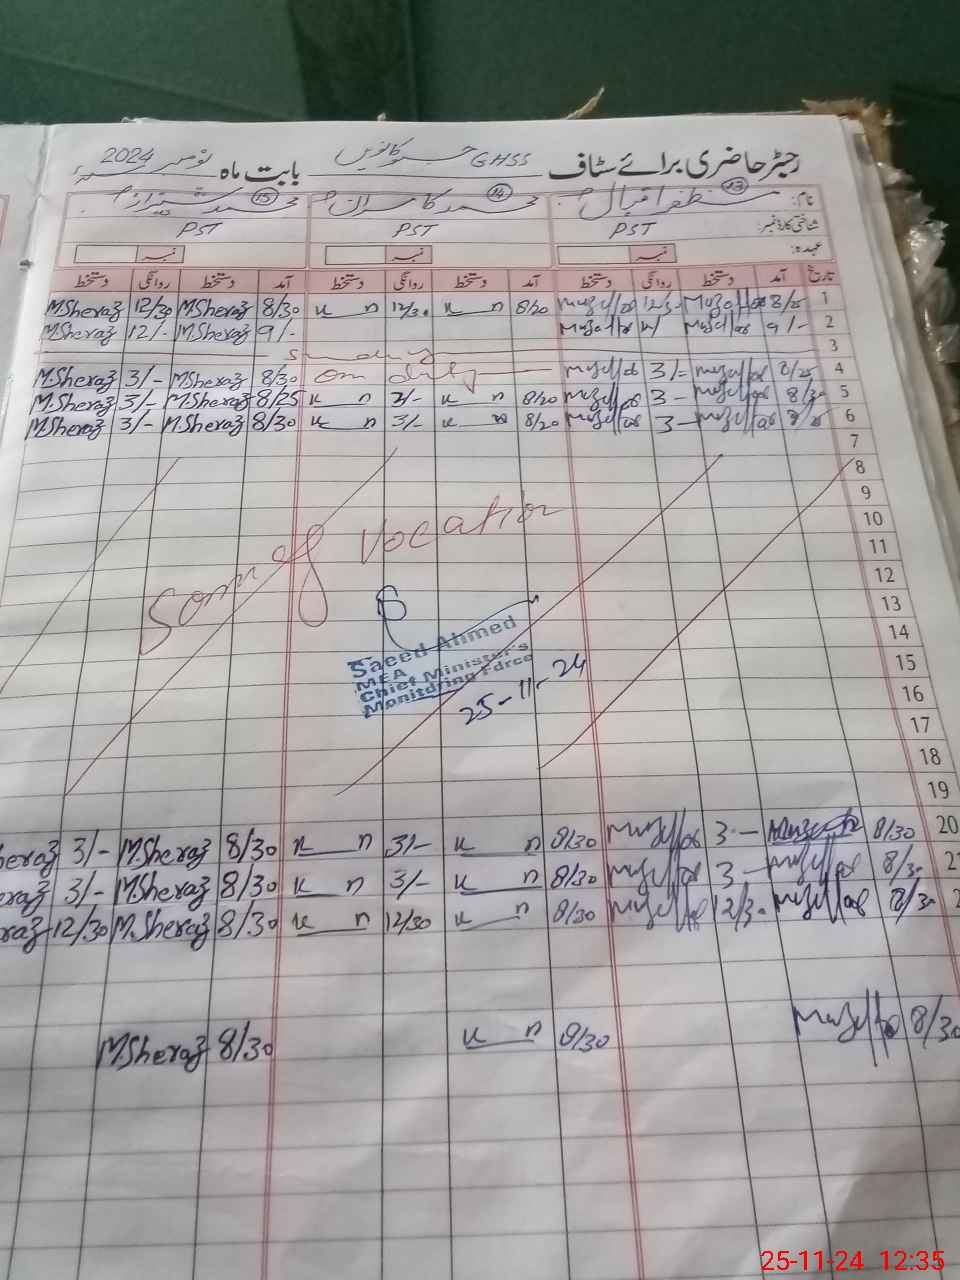 رجسٹر حاضری برائے سٹاف GHSS بابت ماہ نومبر 2024
نام: مظفر اقبال 13 محمد کامران 14 محمد شیراز 15
شناختی کارڈ نمبر: PST PST PST
عہدہ: نمبر نمبر نمبر
تاریخ آمد دستخط روانگی دستخط آمد دستخط روانگی دستخط آمد دستخط روانگی دستخط
M.Sheraz 12/30 M.Sheraz 8/30 K n 12/30 K n 8/20 1
M.Sheraz 12/- M.Sheraz 9/- 9/- 2
Sunday 3
M.Sheraz 3/- M.Sheraz 8/30 on duty 3/- 8/25 4
M.Sheraz 3/- M.Sheraz 8/25 K n 3/- K n 8/20 3- 8/30 5
M.Sheraz 3/- M.Sheraz 8/30 K n 3/- K n 8/20 3- 6
7
8
9
10
11
12
13
14
15
16
17
18
19
Somog Vocation
Saeed Ahmed
MEA
Chief Minister's
Monitoring Force
25-11-24
3/- M.Sheraz 8/30 K n 3/- K n 8/30 Muzaffar 3- 8/30 20
3/- M.Sheraz 8/30 K n 3/- K n 8/30 Muzaffar 3- Muzaffar 8/30
12/30 M.Sheraz 8/30 K n 12/30 K n 8/30 Muzaffar 12/30 Muzaffar 8/30
M.Sheraz 8/30 K n 8/30 Muzaffar 8/30
25-11-24 12:35